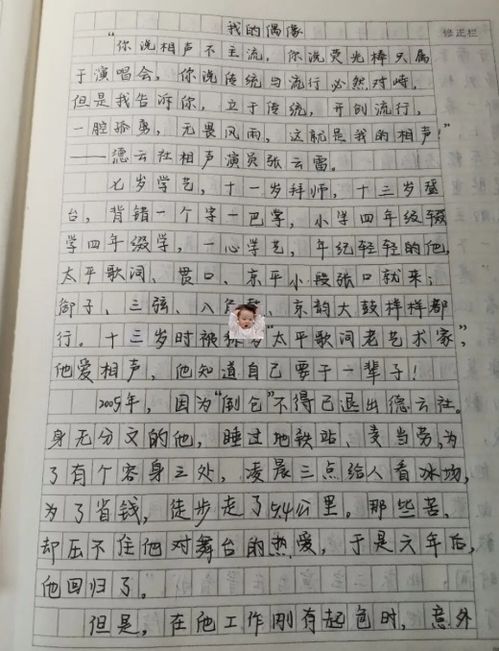 我的偶像
修正栏
“你说相声不主流，你说荧光棒只属
于演唱会，你说传统与流行必然对峙，
但是我告诉你，立于传统，开创流行，
一腔孤勇，无畏风雨，这就是我的相声！”
——德云社相声演员张云雷。
七岁学艺，十一岁拜师，十三岁登
台，背错一个字一巴掌，小学四年级辍
学四年级学，一心学艺，年纪轻轻的他，
太平歌词、贯口、京平小段张口就来；
御子、三弦、八角鼓，京韵大鼓样样都
行。十三岁时被称为“太平歌词老艺术家”，
他爱相声，他知道自己要干一辈子！
2005年，因为“倒仓”不得已退出德云社。
身无分文的他，睡过地铁站、麦当劳，为
了有个容身之处，凌晨三点给人看冰场，
为了省钱，徒步走了44公里。那些苦，
却压不住他对舞台的热爱，于是六年后，
他回归了。
但是，在他工作刚有起色时，意外